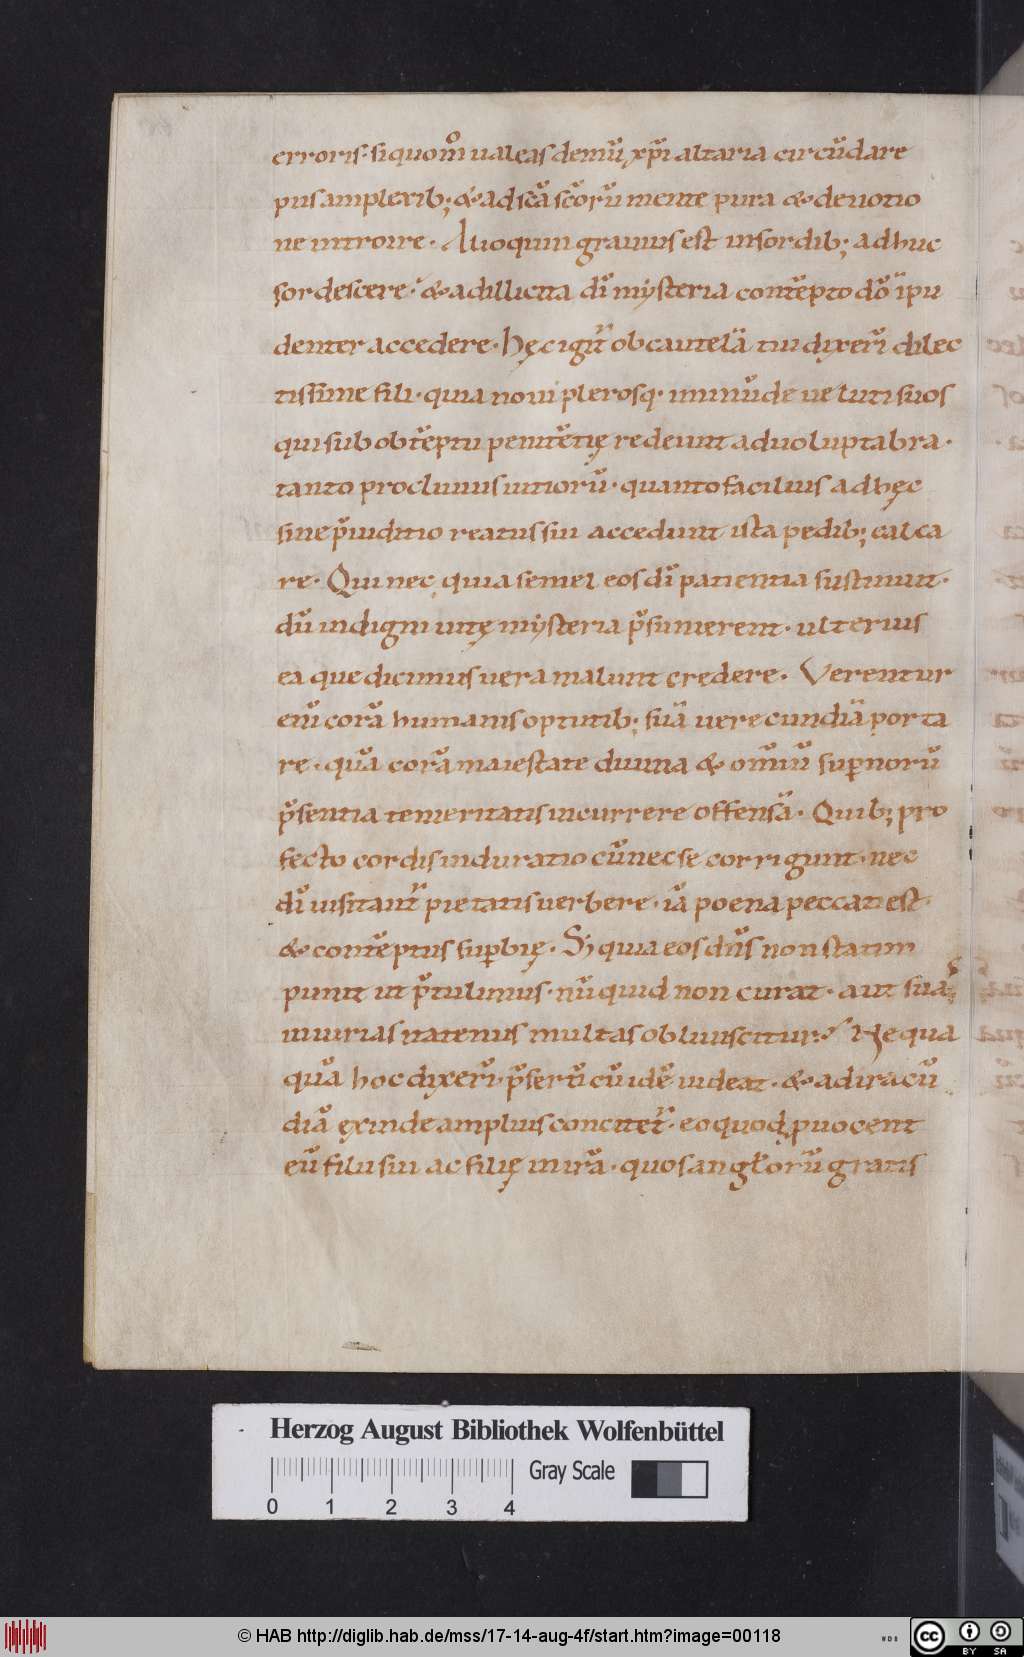 erroris· si quom̊ ualeas demū xp̄i altaria circūdare
pus amplexib; & ad scā scōrū mente pura & deuotio
ne introire· Alioquin grauius est in sordib; adhuc
sordescere· & ad illicita dī mysteria contēpto dō īpu
denter accedere· Hęc igit̄ ob cautelā tui dixerī dilec
tissime fili· quia noui plerosq· inmūde ueluti suos
qui sub obtēptu penitētię redeunt ad uoluptabra·
tanto procliuius uitiorū· quanto facilius ad hęc
sine p̄iuditio reatus sui accedunt ista pedib; calca
re· Qui nec, quia semel eos dī patientia sustinuit·
dū indigni uitę mysteria p̄sumerent· ulterius
ea que dicimus uera malunt credere· Verentur
enī corā humanis optutib; suā uerecundiā porta
re· quā corā maiestate diuina & omīū supnorū
p̄sentia temeritatis incurrere offensā· Quib; pro
fecto cordis induratio cū nec se corrigunt· nec
dī uisitant̄ pietatis uerbere· iā poena peccati est
& contēptus supbię· Sꝫ quia eos dn̄s non statim
punit ut p̄tulimus· nūquid non curat· aut suas
iniurias uatenus multas obliuiscitur? Nequa
quā hoc dixerī· p̄sertī cū idē uideat· & ad iracū
diā exinde amplius concitet̄· eo quod puocent
eū filii sui ac filię in irā· quos angl̄orū gratis
Herzog August Bibliothek Wolfenbüttel
Gray Scale
0 1 2 3 4
© HAB http://diglib.hab.de/mss/17-14-aug-4f/start.htm?image=00118
WDB
cc BY SA